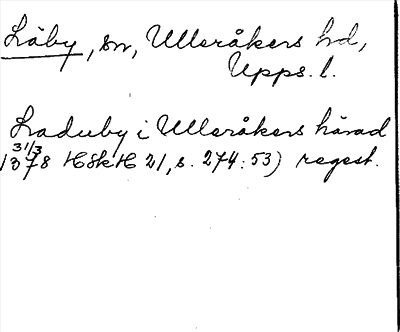 Läby, sn, Ulleråkers hd,
Upps. l.
Laduby i Ulleråkers härad
31/3
1378 HSkH 21, s. 274:53) regest.